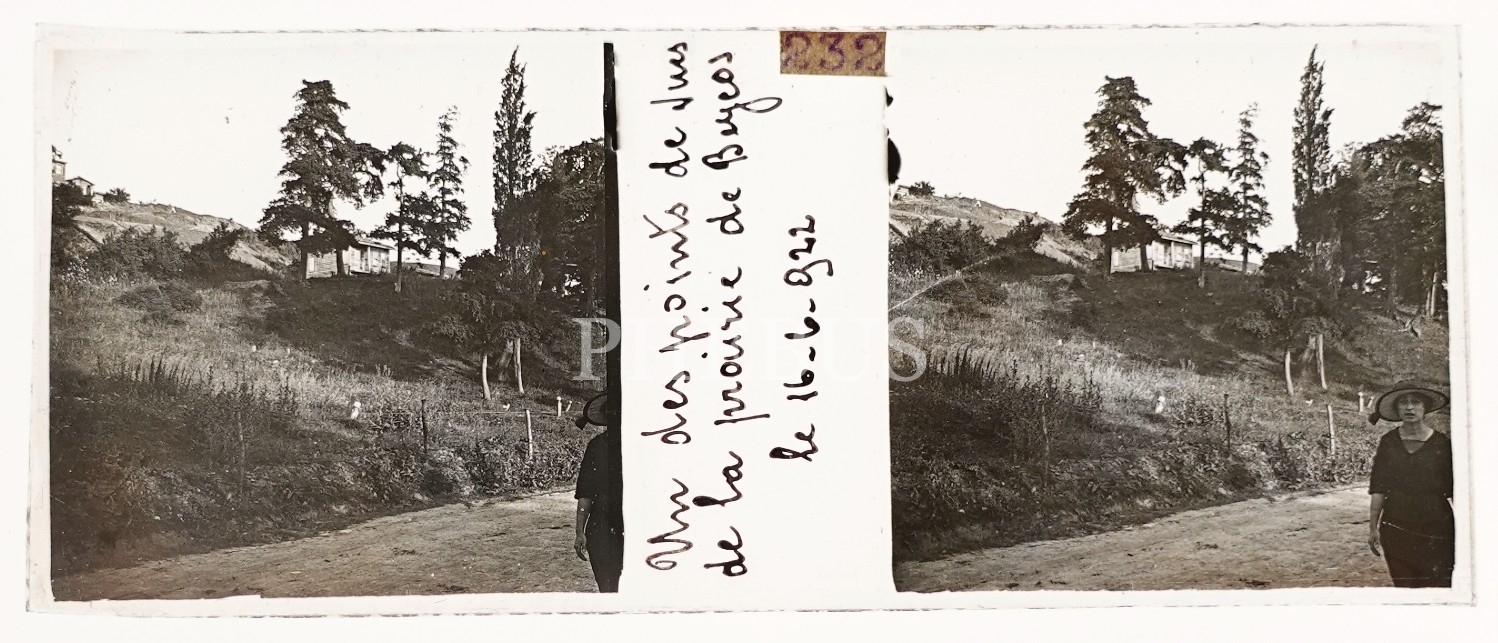 232
Un des points de vues
de la prairie de Beycos
le 16-6-922
PHIBUS